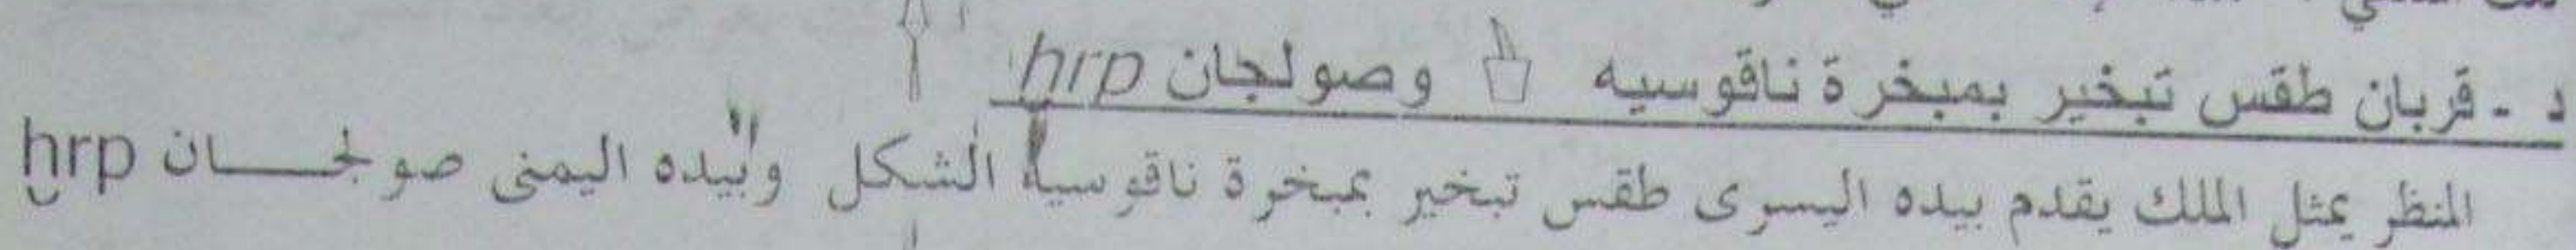 د - قربان طقس تبخير بمبخرة ناقوسيه وصولجان hrp
المنظر يمثل الملك يقدم بيده اليسرى طقس تبخير بمبخرة ناقوسية الشكل وبيده اليمنى صولجان ḫrp